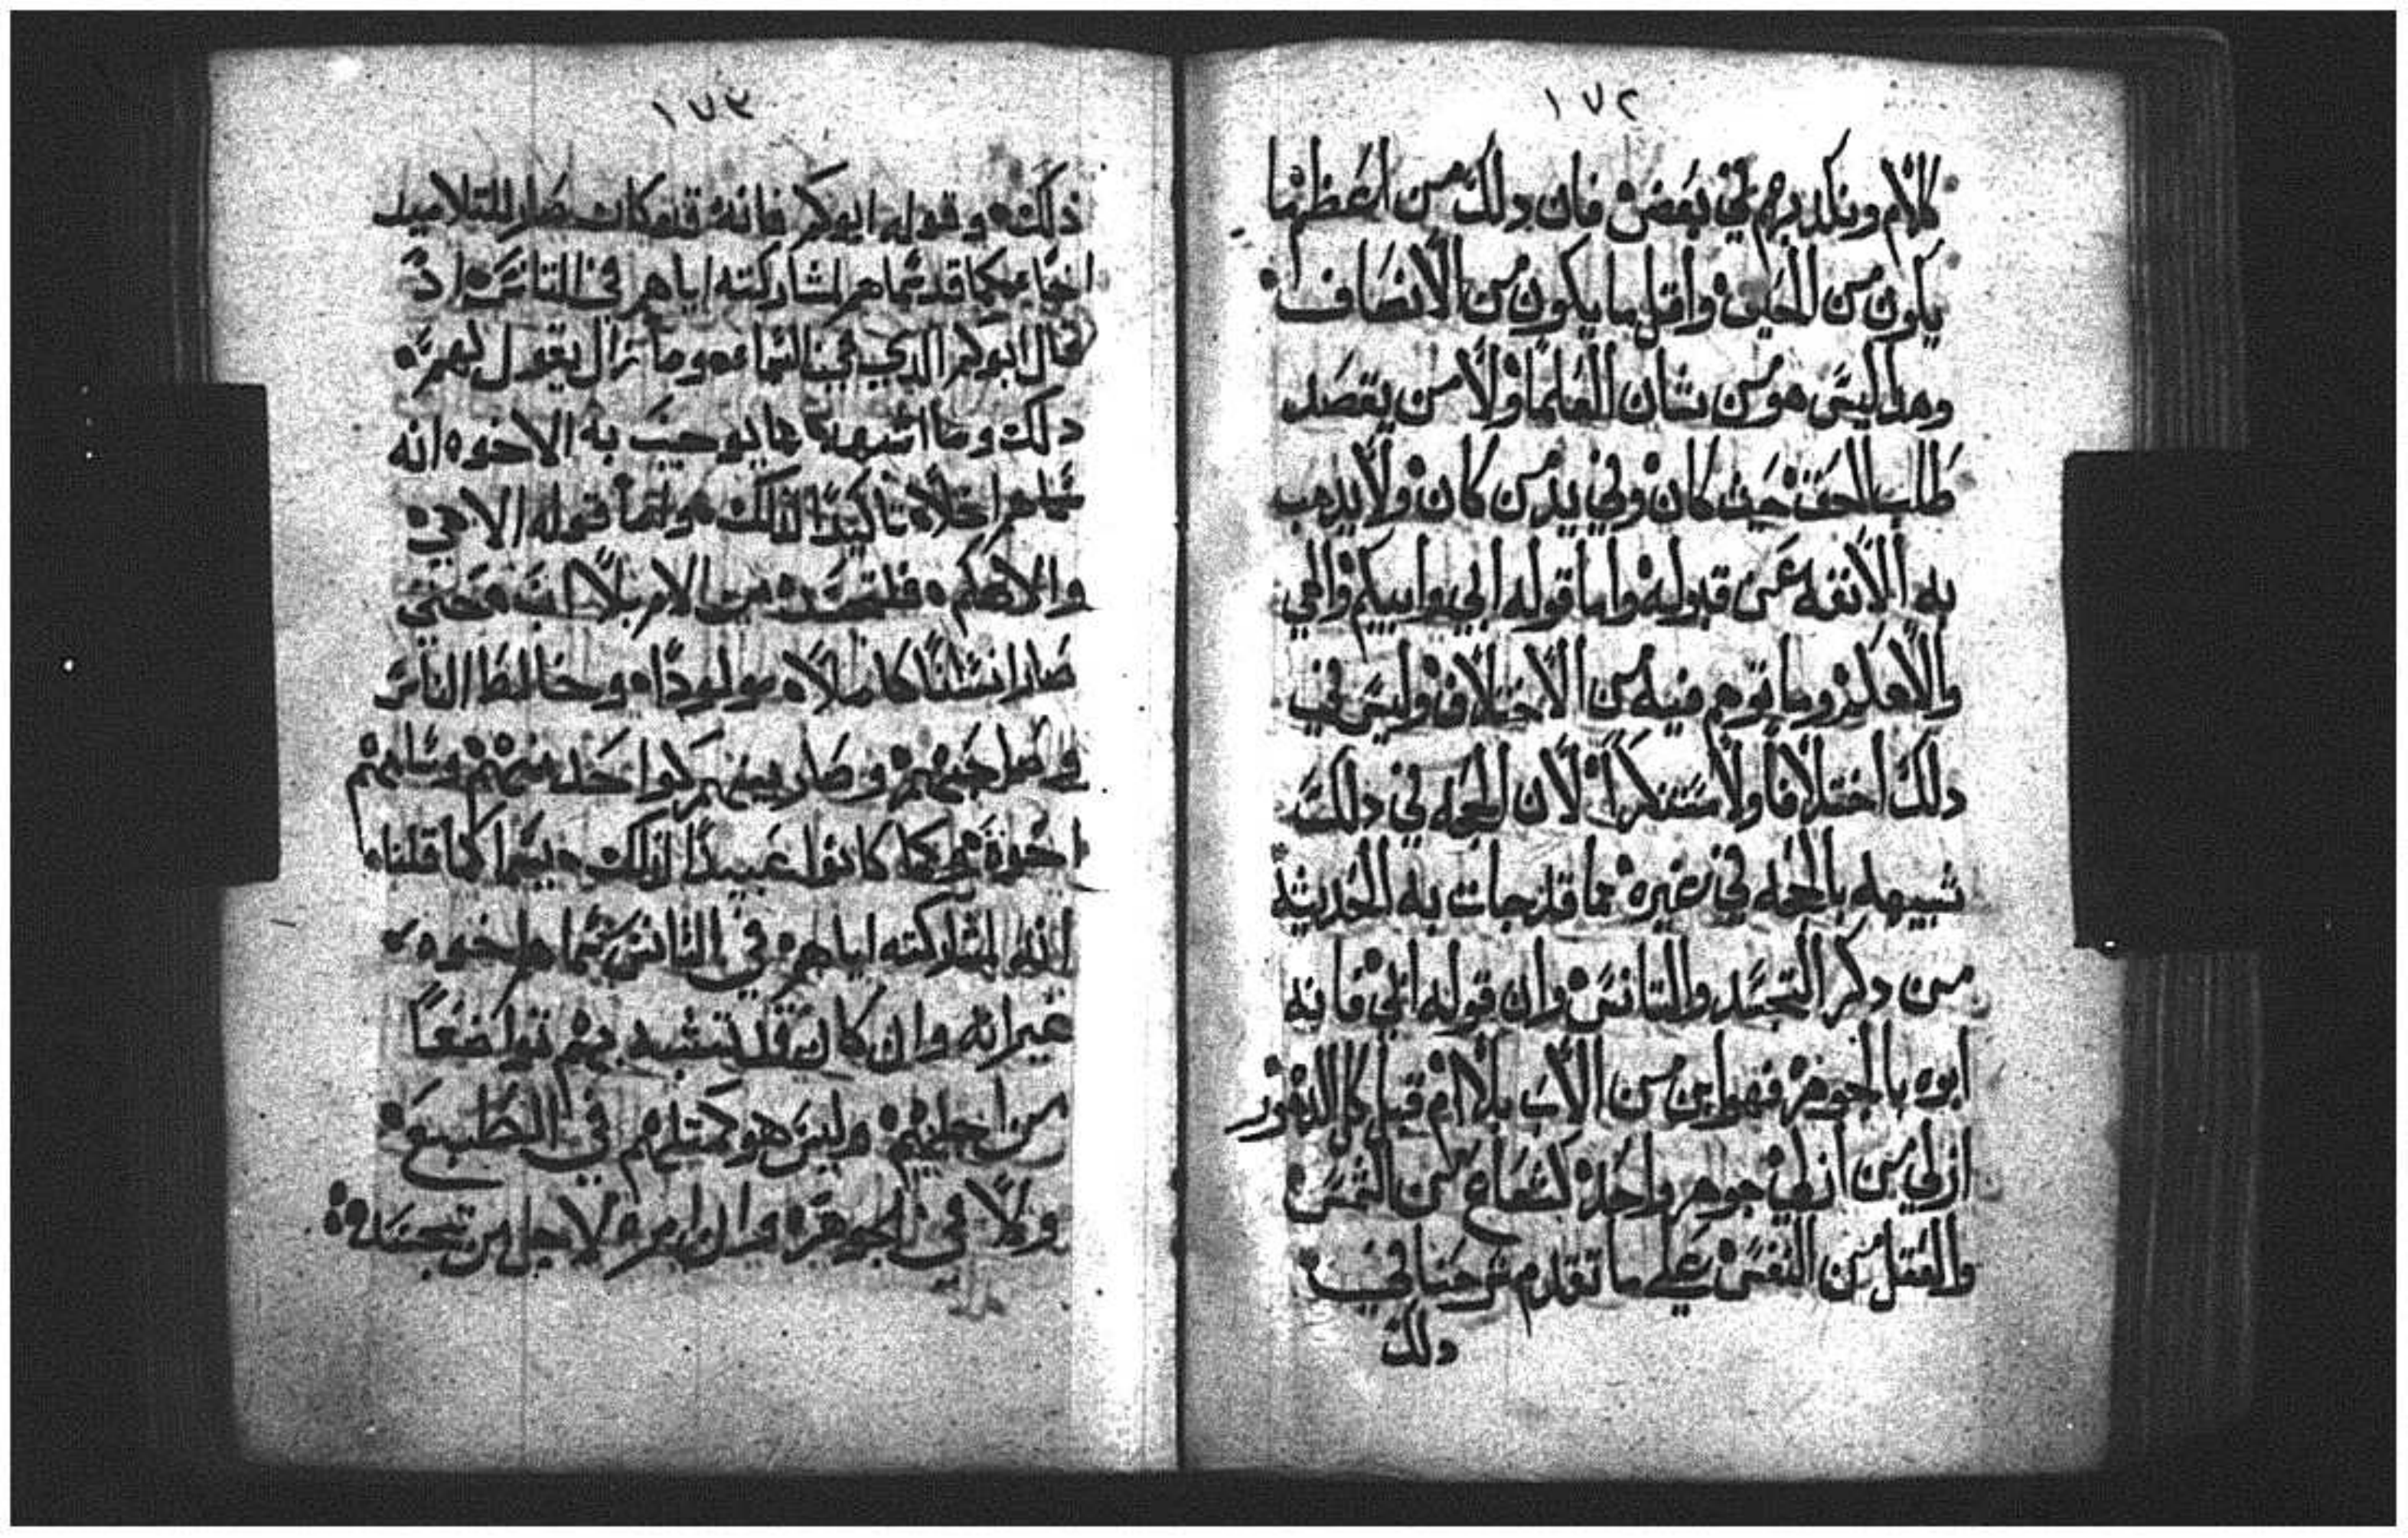 ١٧٢
كلام وىكدىرهم في بعض فان دلك من اعظم ما
يكون من الحيف واقل ما يكون من الانصاف
وهدا ليس هو من شان العلما ولا من يقصد
طلب الحق حيث كان وفي يد من كان ولا يدهب
به الانفه عن قبوله واما قوله ابي وابيكم والهي
والاهكم وما توهم فيه من الاختلاف وليس في
دلك اختلافا ولا مستنكرا لان الحجه في دلك
شبيهه بالحجه في غيره مما قد جات به الحديثة
من دكر التجسد والتانس وان قوله ابي فانه
ابوه بالجوهر فهو ابن من الاب بلا ام قبل كل الدهور
ازلي من ازلي جوهر واحد كشعاع من الشمس
والعقل من النفس علي ما تقدم شرحنا في
دلك
١٧٣
ذلك وقوله ابوكم فانه قد كان صار للتلاميد
اخا كما قد سماهم لمشاركته اياهم في التانس اذ
قال ابوكم الدي في السماء وما زال يقول لهم
دلك وما اشبهه مما يوجب به الاخوه انه
سماهم تاكيدًا لذلك واما قوله الاهي
والاهكم فلتجسده من الام بلا اب وحتي
صار انسانًا كاملًا مولودًا وخالط الناس
وصاحبهم وصار بينهم كواحد منهم وسماهم
اخوة كما كانوا عبيدًا لذلك كما قلنا
انه لمشاركته اياهم في التانس سماهم اخوه
غير انه وان كان قد تشبه بهم تواضعًا
من اجلهم وليس هو كمثلهم في الطبيعه
ولا في الجوهر وان امره لاجل من تجسده